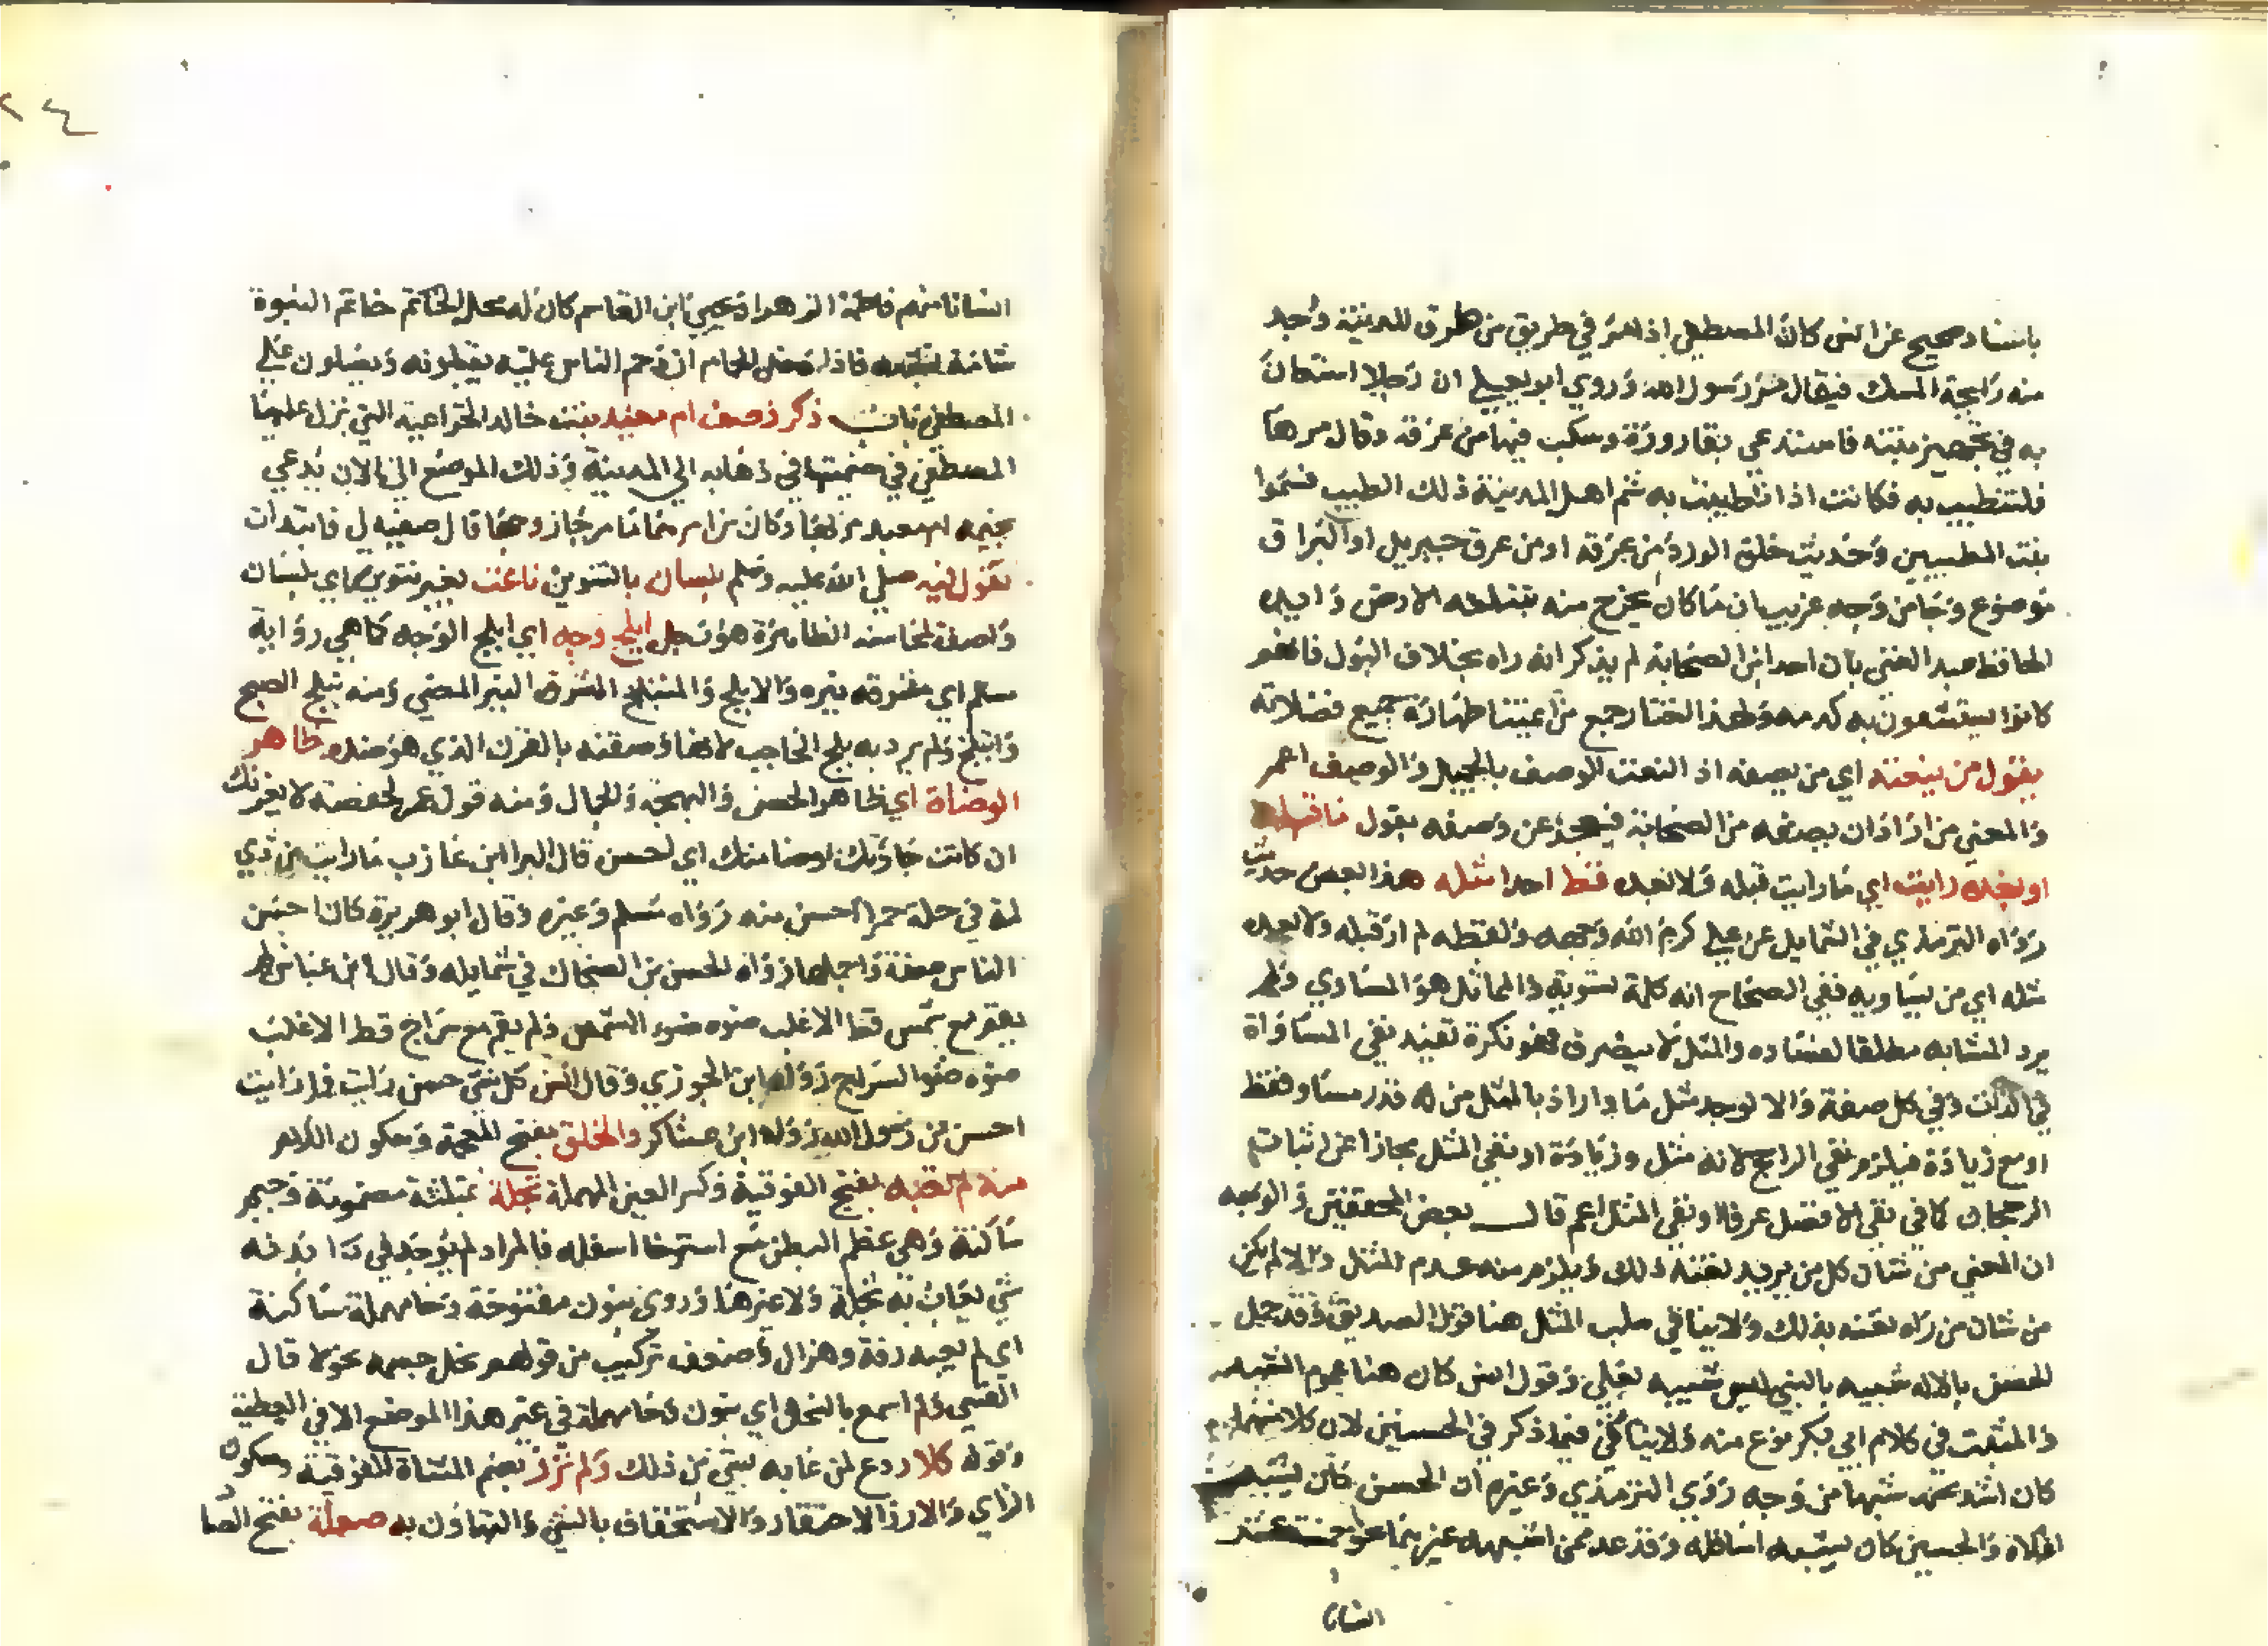 باسناد صحيح عن انس كان المصطفى اذا مر في طريق من طرق المدينة وجد
منه رايحة المسك فيقال مر رسول الله وروي ابو يعلي ان رجلا استعان
به في تجهيز بنته فاستدعي بقارورة وسكب فيها من عرقه وقال مرها
فلتتطيب به فكانت اذا تطيبت به شم اهل المدينة ذلك الطيب فسموا
بيت المطيبين وحديث خلق الورد من عرقه او من عرق جبريل او البراق
موضوع وجا من وجه غريب ان ما كان يخرج منه تبتلعه الارض وايده
الحافظ عبد الغني بان احدا من الصحابة لم يذكر انه راه بخلاف البول
كانوا يستشفون به كدمه ولهذا اختار جمع من ايمتنا طهارة جميع فضلاته
يقول من ينعته اي من يصفه اذ النعت الوصف بالجميل والوصف اعم
والمعني من اراد ان يصفه من الصحابة فيعجز عن وصفه يقول ما قبله
او بعده رايت اي ما رايت قبله ولا بعده قط احدا مثله هذا بعض حديث
رواه الترمذي في الشمايل عن علي كرم الله وجهه ولفظه لم ار قبله ولا بعده
مثله اي من يساويه ففي الصحاح انه كلمة تسوية والمماثل هو المساوي ولم
يرد المشابه مطلقا لفساده والمثل لا يتعرف فهو نكرة تفيد نفي المساواة
في الذات وفي كل صفة والا لوجد مثل ما واراد بالمثل من له قدر مساو فقط
او مع زيادة فيلزم نفي الراجح لانه مثل وزيادة او نفي المثل مجازا عن اثبات
الرجحان كما في نفي الافضل عرفا ونفي المثل اعم قال بعض المحققين والوجه
ان المعني من شان كل من يريد نعته ذلك ويلزم منه عدم المثل والا لم يكن
من شان من راه نعته بذلك ولا ينافي سلب المثل هنا قول الصديق وقد حمل
الحسن بالاله شبيه بالنبي ليس شبيه بعلي وقول انس كان هنا عموم الشبه
والمثبت في كلام ابي بكر نوع منه ولا ينافي فيما ذكر في الحسنين لان كلا منهما
كان اشد شبها من وجه روي الترمذي وغيره ان الحسن كان يشبه
اعلاه والحسين كان يشبه اسافله وقد عد ممن اشبهه غيرهما نحو خمسة عشر
انسانا
انسانا منهم فاطمة الزهرا ويحيي ابن القاسم كان له محل الخاتم خاتم النبوة
شامة فاذا دخل الحمام ازدحم الناس عليه يقبلونه ويصلون علي
المصطفي ذكر وصف ام معبد بنت خالد الخزاعية التي نزل عليها
المصطفي في خيمتها في ذهابه الي المدينة وذلك الموضع الي الان يدعي
بخيمة ام معبد قال صفيه لي فابتدات
تقول فيه صلي الله عليه وسلم بلسان بالتنوين ناعت بغير تنوين اي بلسان
واصفة لمحاسنه الظاهرة هو رجل ابلج وجه اي ابلج الوجه كما هي رواية
مسلم اي مشرقه نيره والابلج والمتبلج المشرق النير المضي ومنه تبلج الصبح
وانبلج ولم يرد به بلج الحاجب لانها وصفته بالقرن الذي هو ضده ظاهر
الوضاة اي ظاهر الحسن والبهجة والجمال ومنه قول عمر لحفصة لا يغرنك
ان كانت جارتك اوضا منك اي احسن قال البرا ابن عازب ما رايت من ذي
لمة في حلة حمرا احسن منه رواه مسلم وغيره وقال ابو هريرة كان احسن
الناس صفة واجملها رواه الحسن بن الضحاك في شمايله وقال ابن عباس لم
يقم مع شمس قط الا غلب ضوه ضوء الشمس ولم يقم مع سراج قط الا غلب
ضوه ضوا السراج رواه ابن الجوزي وقال انس كل شي حسن رايت فما رايت
احسن من رسول الله رواه ابن عساكر والخلق بفتح المعجمة وسكون اللام
منه لم تعبه بفتح الفوقية وكسر العين المهملة ثجلة بمثلثة مضمومة وجيم
ساكنة وهي عظم البطن مع استرخا اسفله فالمراد لم يوجد في ذا بدنه
شي يعاب به ثجلة ولا غيرها وروي بنون مفتوحة وحا مهملة ساكنة
اي لم تعبه دقة وهزال وضعف تركيب من قولهم نحل جسمه نحولا قال
القتبي ولم اسمع بالنحل اي بنون وحا مهملة في غير هذا الموضع الا في العطية
وقوله كلا ردع لمن عابه بشي من ذلك ولم تزر بضم المثناة الفوقية وسكون
الزاي والازرا الاحتقار والاستخفاف بالشي والتهاون به صعلة بفتح الصا